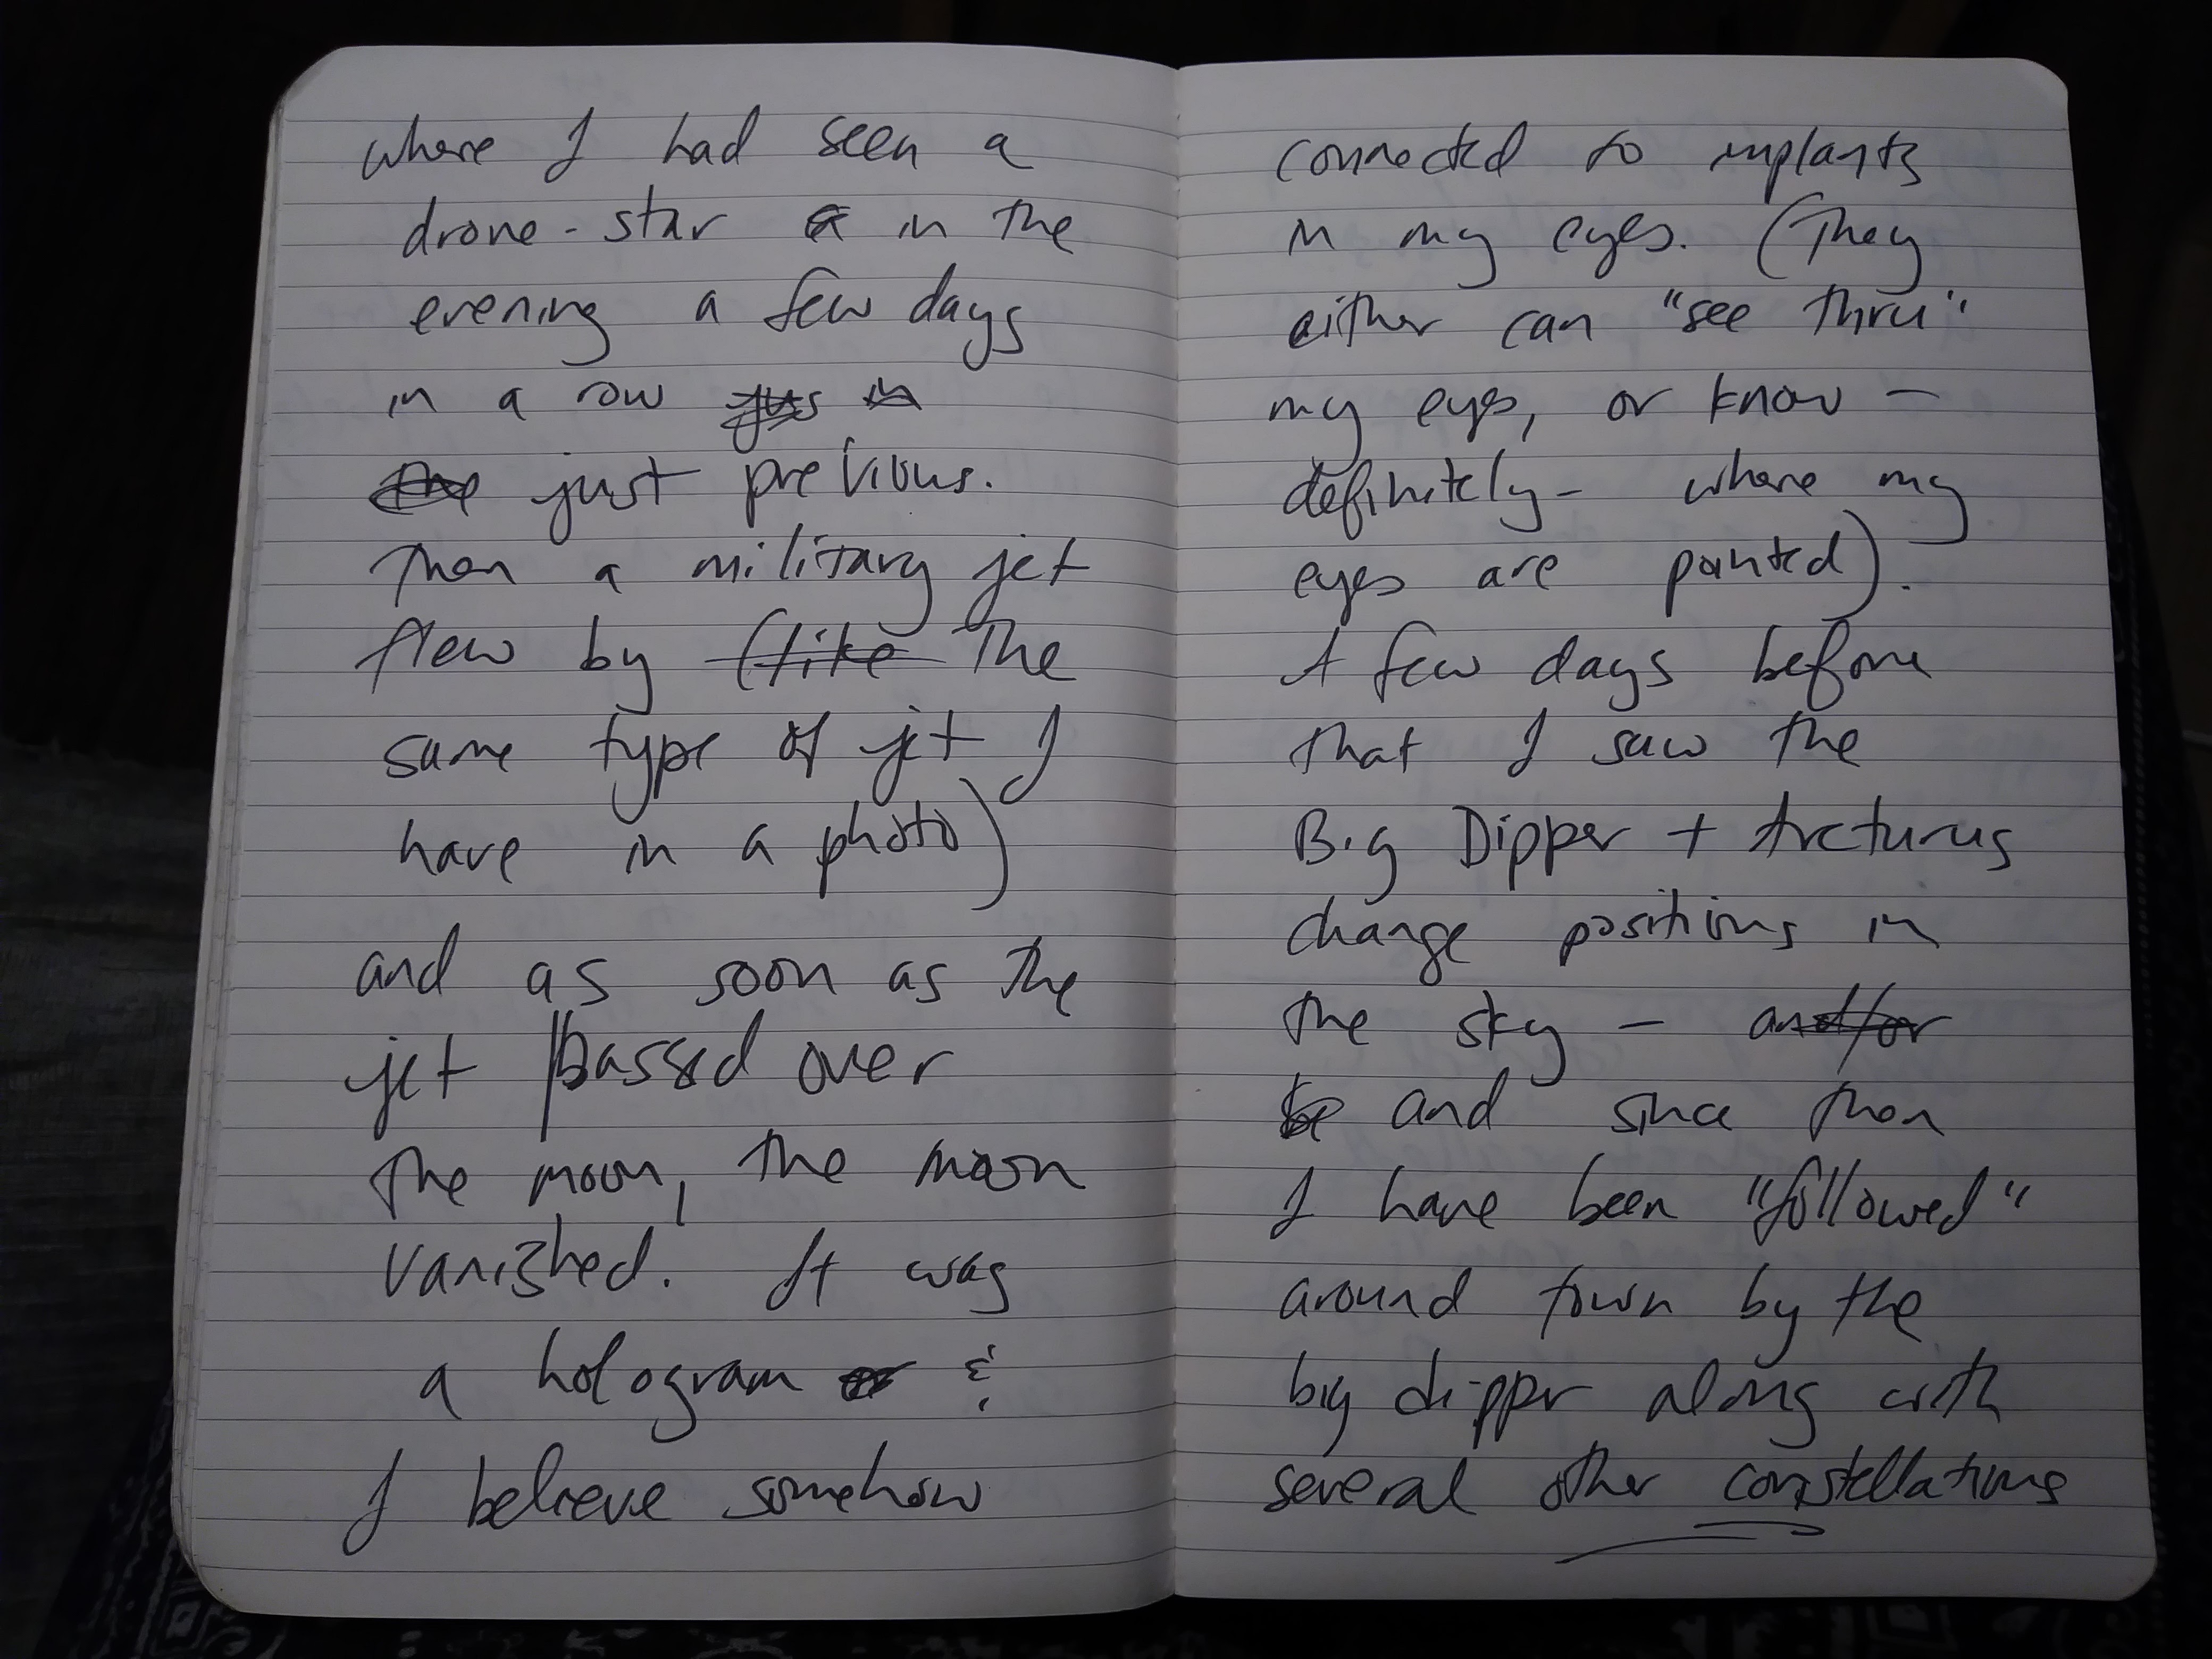 where I had seen a
drone-star a in the
evening a few days
in a row jus in
the just previous.
Then a military jet
flew by (like the
same type of jet I
have in a photo)
and as soon as the
jet passed over
the moon, the moon
vanished. It was
a hologram or &
I believe somehow
connected to implants
in my eyes. (They
either can "see thru"
my eyes, or know –
definitely – where my
eyes are pointed).
A few days before
that I saw the
Big Dipper + Arcturus
change positions in
the sky – and/or
and since then
I have been "followed"
around town by the
big dipper along with
several other constellations